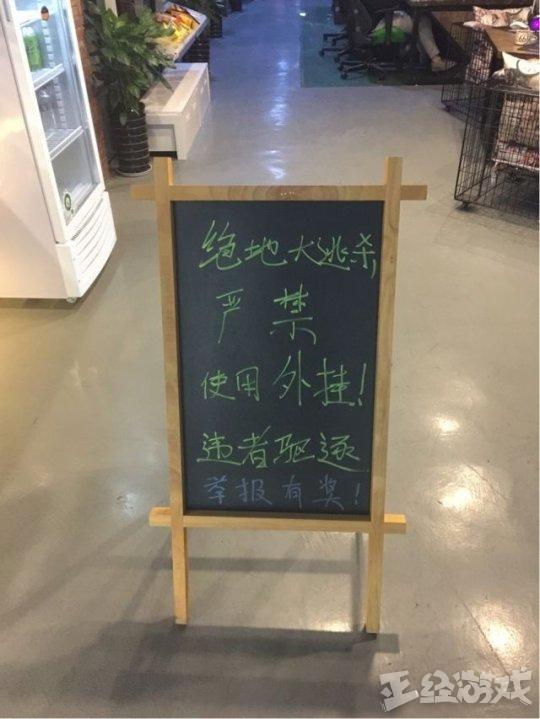 绝地大逃杀,
严禁
使用外挂!
违者驱逐
举报有奖!
正经游戏